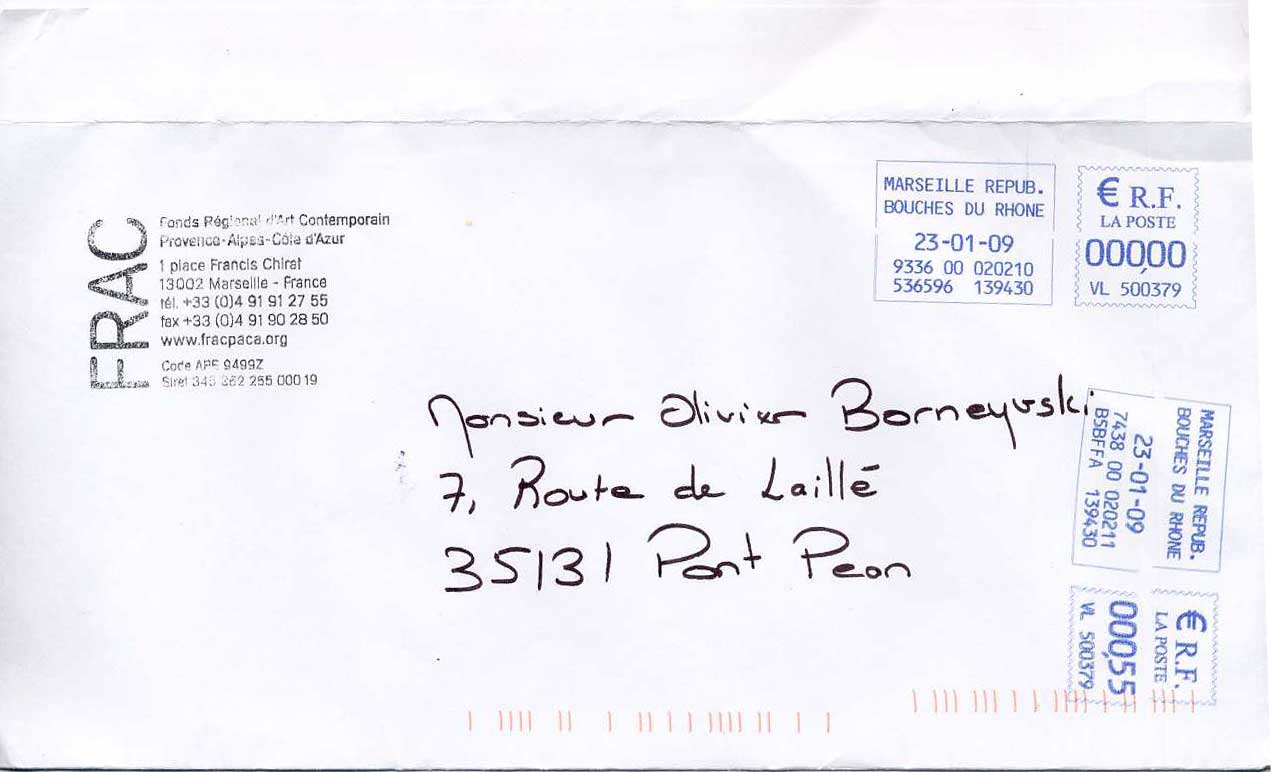 FRAC
Fonds Régional d'Art Contemporain
Provence-Alpes-Côte d'Azur
1 place Francis Chirat
13002 Marseille - France
tél. +33 (0)4 91 91 27 55
fax +33 (0)4 91 90 28 50
www.fracpaca.org
Code APE 9499Z
Siret 343 262 255 000 19
MARSEILLE REPUB.
BOUCHES DU RHONE
23-01-09
9336 00 020210
536596 139430
€ R.F.
LA POSTE
000,00
VL 500379
Monsieur Olivier Borneyvski
7, Route de Laillé
35131 Pont Pean
MARSEILLE REPUB.
BOUCHES DU RHONE
23-01-09
7438 00 020211
B5BFFA 139430
€ R.F.
LA POSTE
000,55
VL 500379